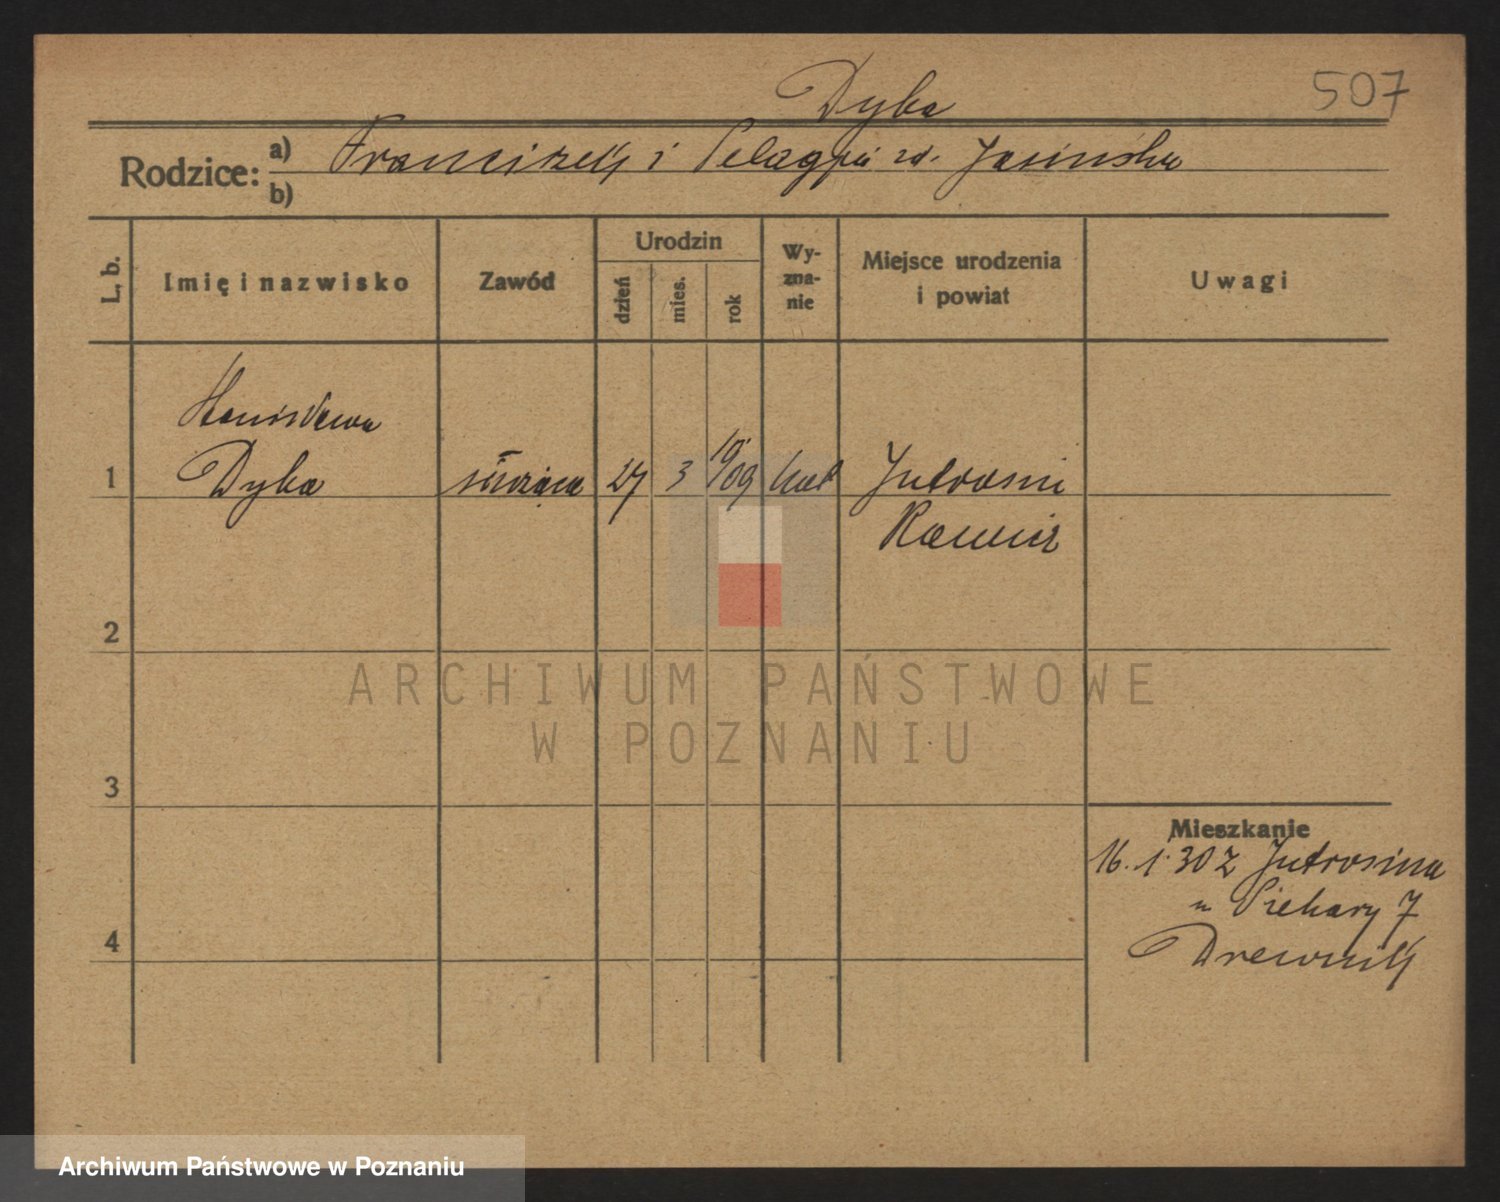 507
Dyka
Rodzice: a) Franciszek i Pelagja z d. Jasińska
b)
L. b.
Imię i nazwisko
Zawód
Urodzin
dzień
mies.
rok
Wy-
zna-
nie
Miejsce urodzenia
i powiat
Uwagi
Stanisława
1 Dyka służąca 27 3 1909 kat Jutrosin
Rawicz
2
ARCHIWUM PAŃSTWOWE
W POZNANIU
3
Mieszkanie
16. 1. 30 z Jutrosina
n Piekary 7
4
Drewnik
Archiwum Państwowe w Poznaniu